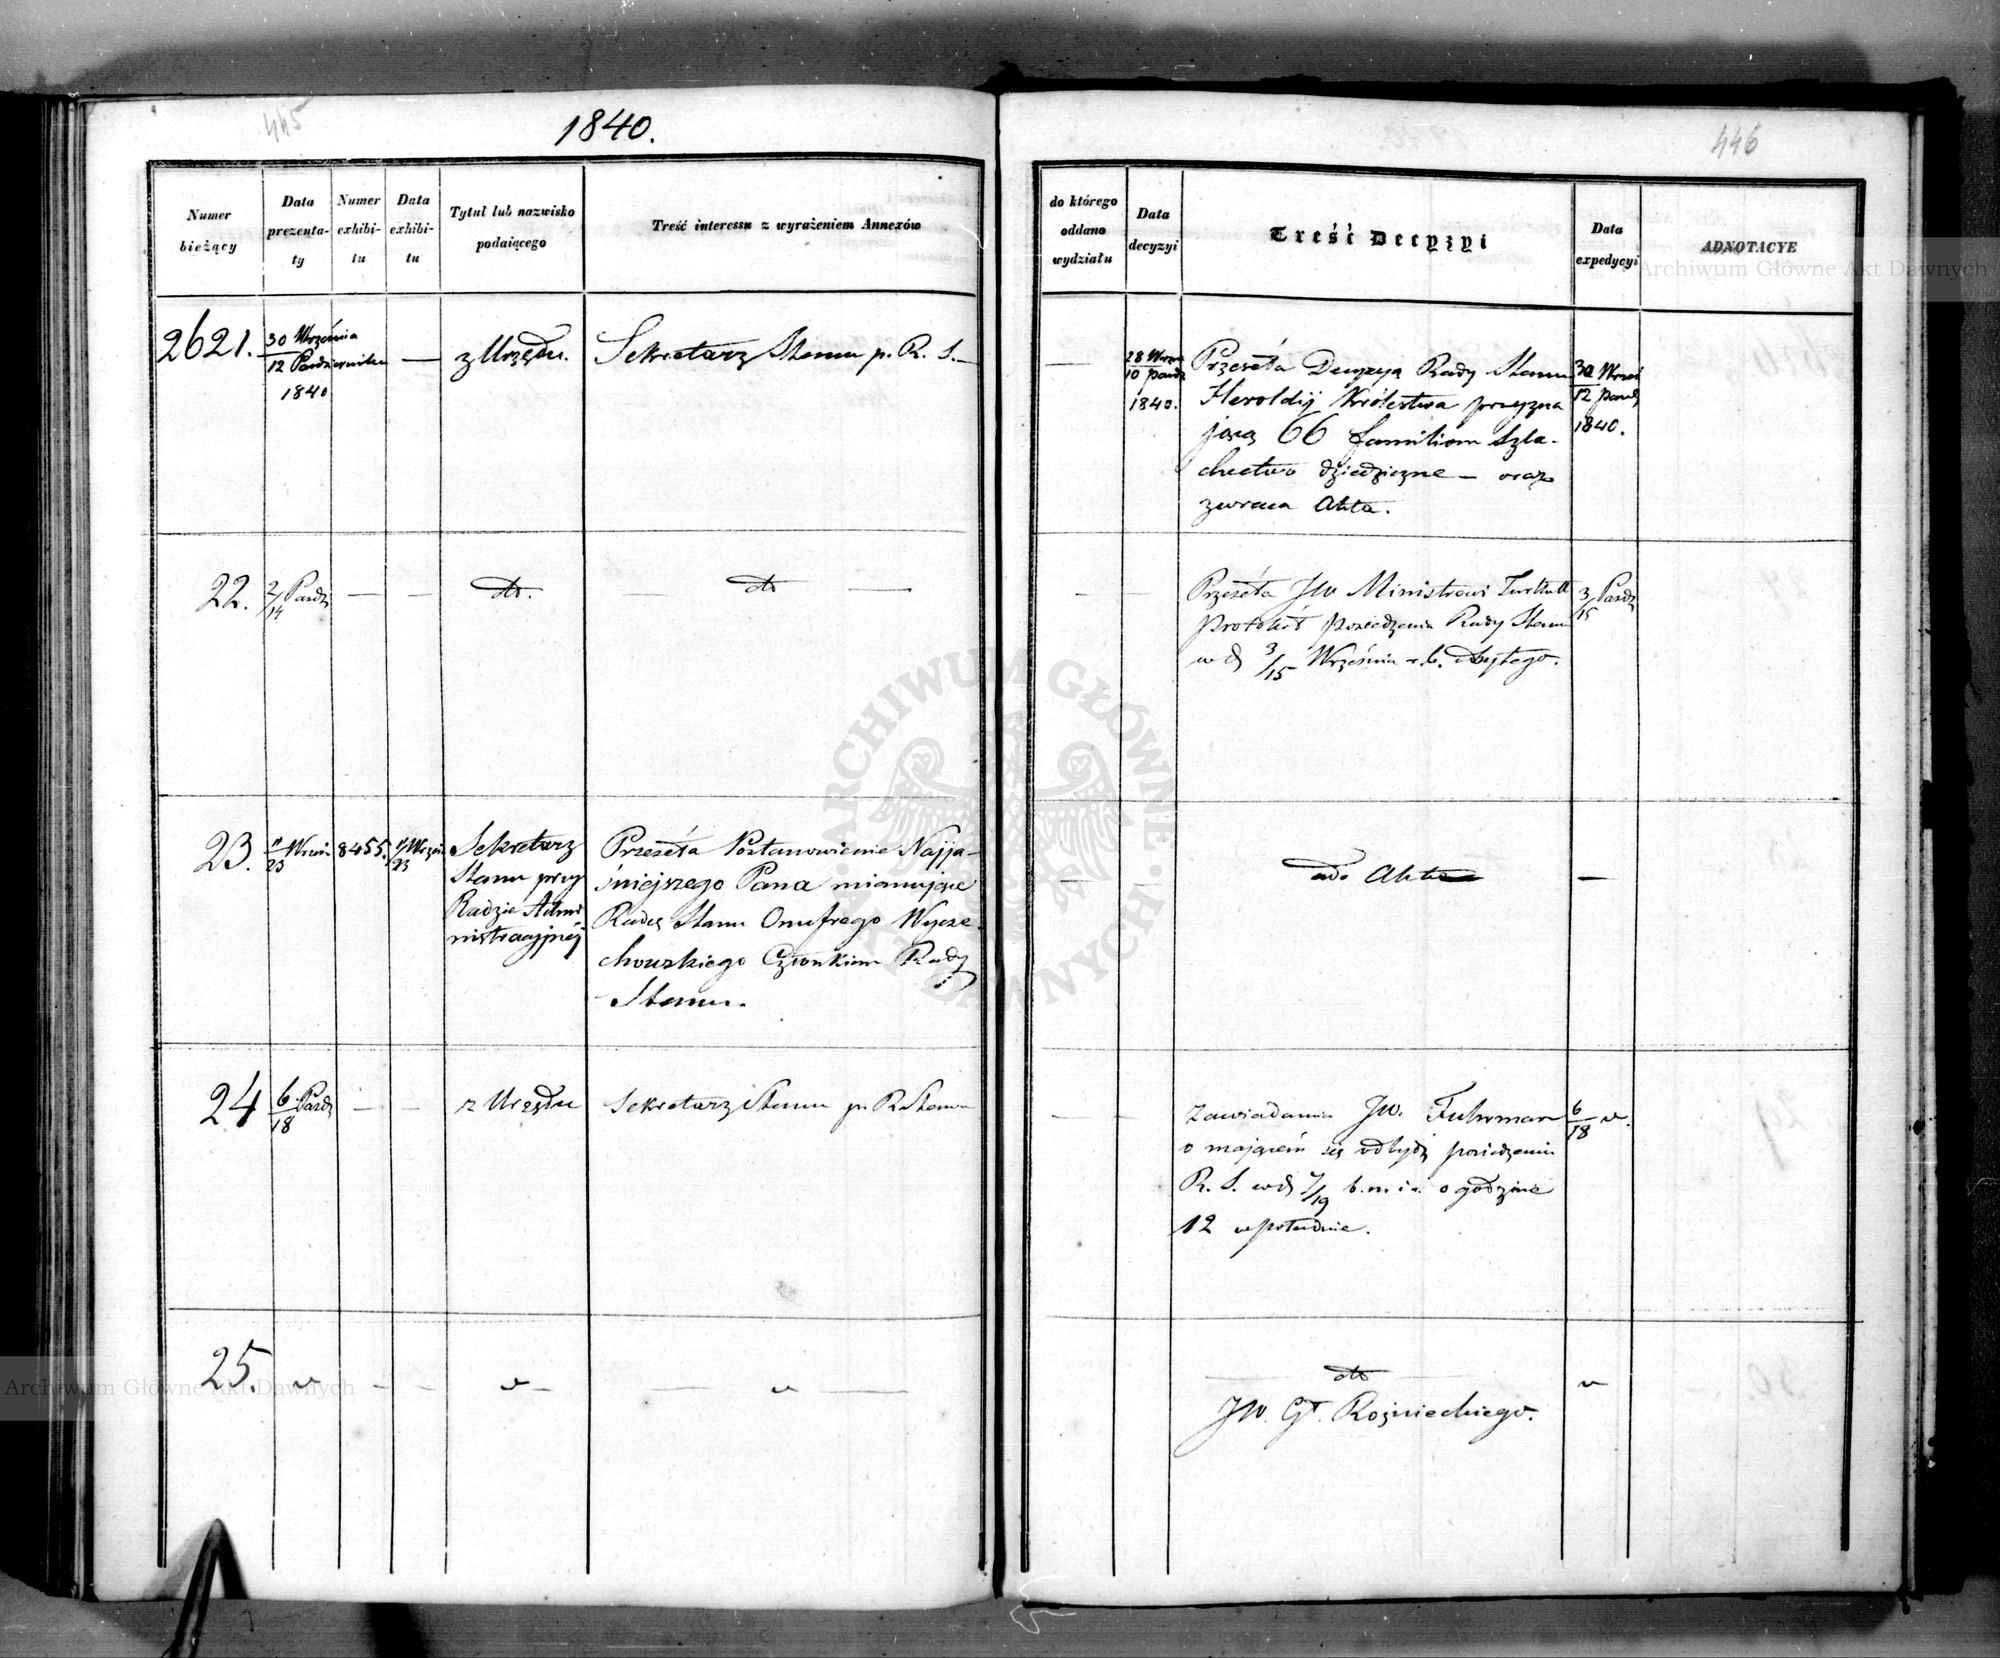 445
1840.
Numer bieżący
Data prezenta-ty
Numer exhibi-tu
Data exhibi-tu
Tytuł lub nazwisko podaiącego
Treść interessu z wyrażeniem Annexów
2621.
30 Września
12 Października
1840
—
z Urzędu.
Sekretarz Stanu p. R. S. —
22.
2/14 Paźdz
—
—
dto.
— dto —
23.
11/23 Wrześ
8455.
11/23 Wrześ
Sekretarz
Stanu przy
Radzie Admi
nistracyjnéj
Przeséła Postanowienie Najja-
śniejszego Pana mianujące
Radcę Stanu Onufrego Wycze-
chowskiego Członkiem Rady
Stanu.
24
6/18 Paźdz
—
—
z Urzędu
Sekretarz Stanu p. R Stanu
25.
—
—
446
do którego oddano wydziału
Data decyzyi
Treść Decyzyi
Data expedycyi
ADNOTACYE
—
28 Wrześ
10 Paźdz
1840.
Przeséła Decyzya Rady Stanu
Heroldyi Królestwa przyzna
jącą 66 familiom Szla-
chectwo dziedziczne — oraz
zwraca Akta.
30 Wrześ
12 Paźdz
1840.
—
—
Przeséła JW Ministrowi Turkułł
protokół posiedzenia Rady Stanu
w d. 3/15 Września r. b. odbytego.
3/15 Paźdz
—
—
ado Akta
—
—
—
Zawiadamia JW. Fuhrman
o mającém się odbydź posiedzeniu
R. S. w d. 7/19 b. m i r. o godzinie
12 w południe.
6/18
dto
JW. Gł. Rożnieckiego.
Archiwum Główne Akt Dawnych
ARCHIWUM GŁÓWNE AKT DAWNYCH
Archiwum Główne Akt Dawnych